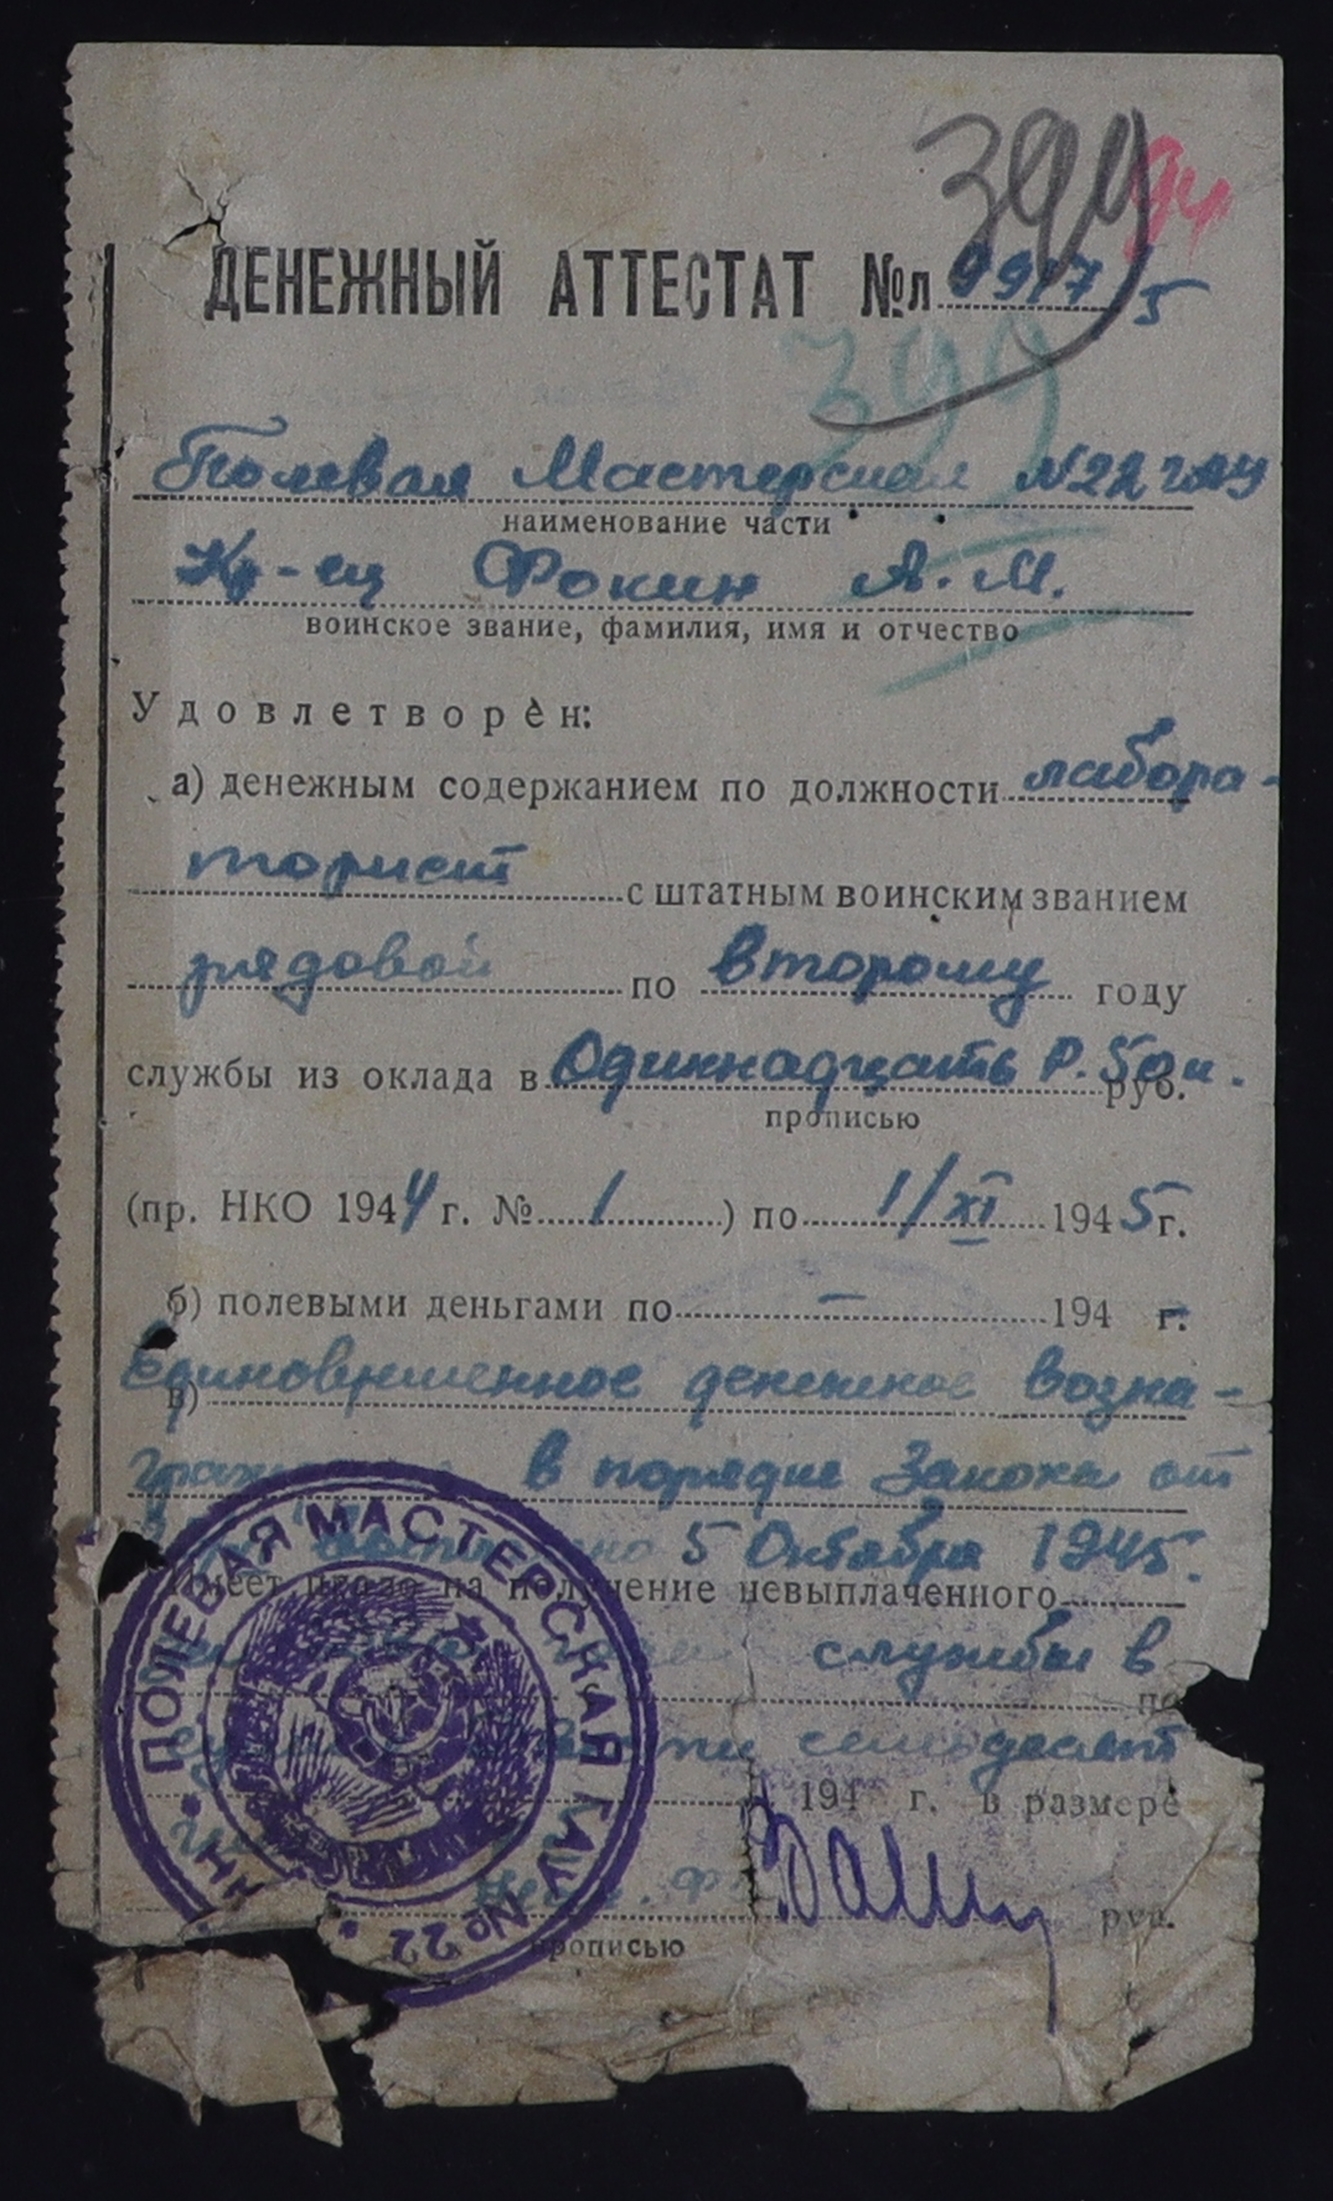 399
94
ДЕНЕЖНЫЙ АТТЕСТАТ №л 5
399
Полевая Мастерская №22 ГАУ
наименование части
Кр-ец Фокин А. М.
воинское звание, фамилия, имя и отчество
Удовлетворен:
а) денежным содержанием по должности лабора-
торист с штатным воинским званием
рядовой по второму году
службы из оклада в Одиннадцать р. 50 к. руб.
прописью
(пр. НКО 1944 г. № 1 ) по 1/XI 1945 г.
б) полевыми деньгами по — 194 г.
в) Единовременное денежное возна-
в порядке Закона от
5 Октября 1945.
Имеет право на получение невыплаченного
службы в
по
семьдесят
194 г. в размере
руб.
прописью
ПОЛЕВАЯ МАСТЕРСКАЯ ГАУ № 22